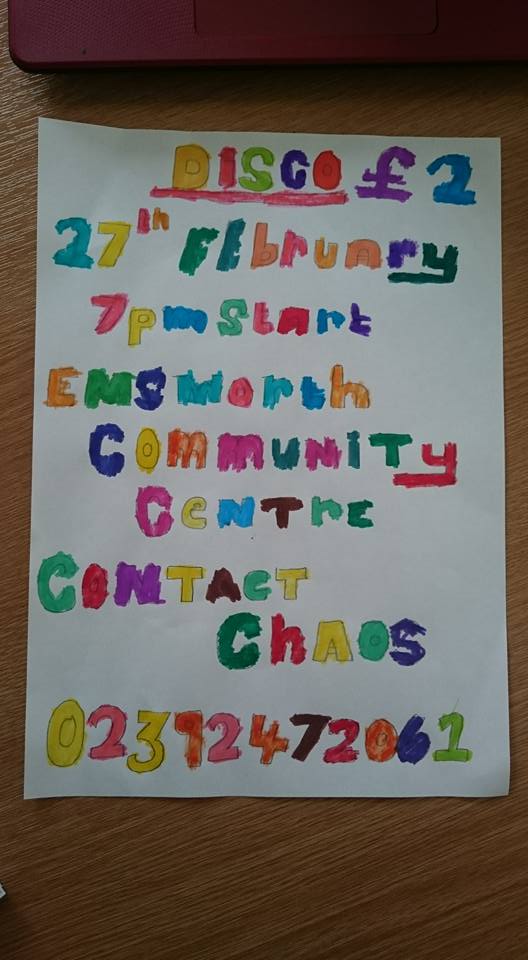 DISCO £2
27th FEbruary
7pm Start
EMSWorth
COmmUNiTy
CeNTrE
CONTAcT
ChAOS
02392472061